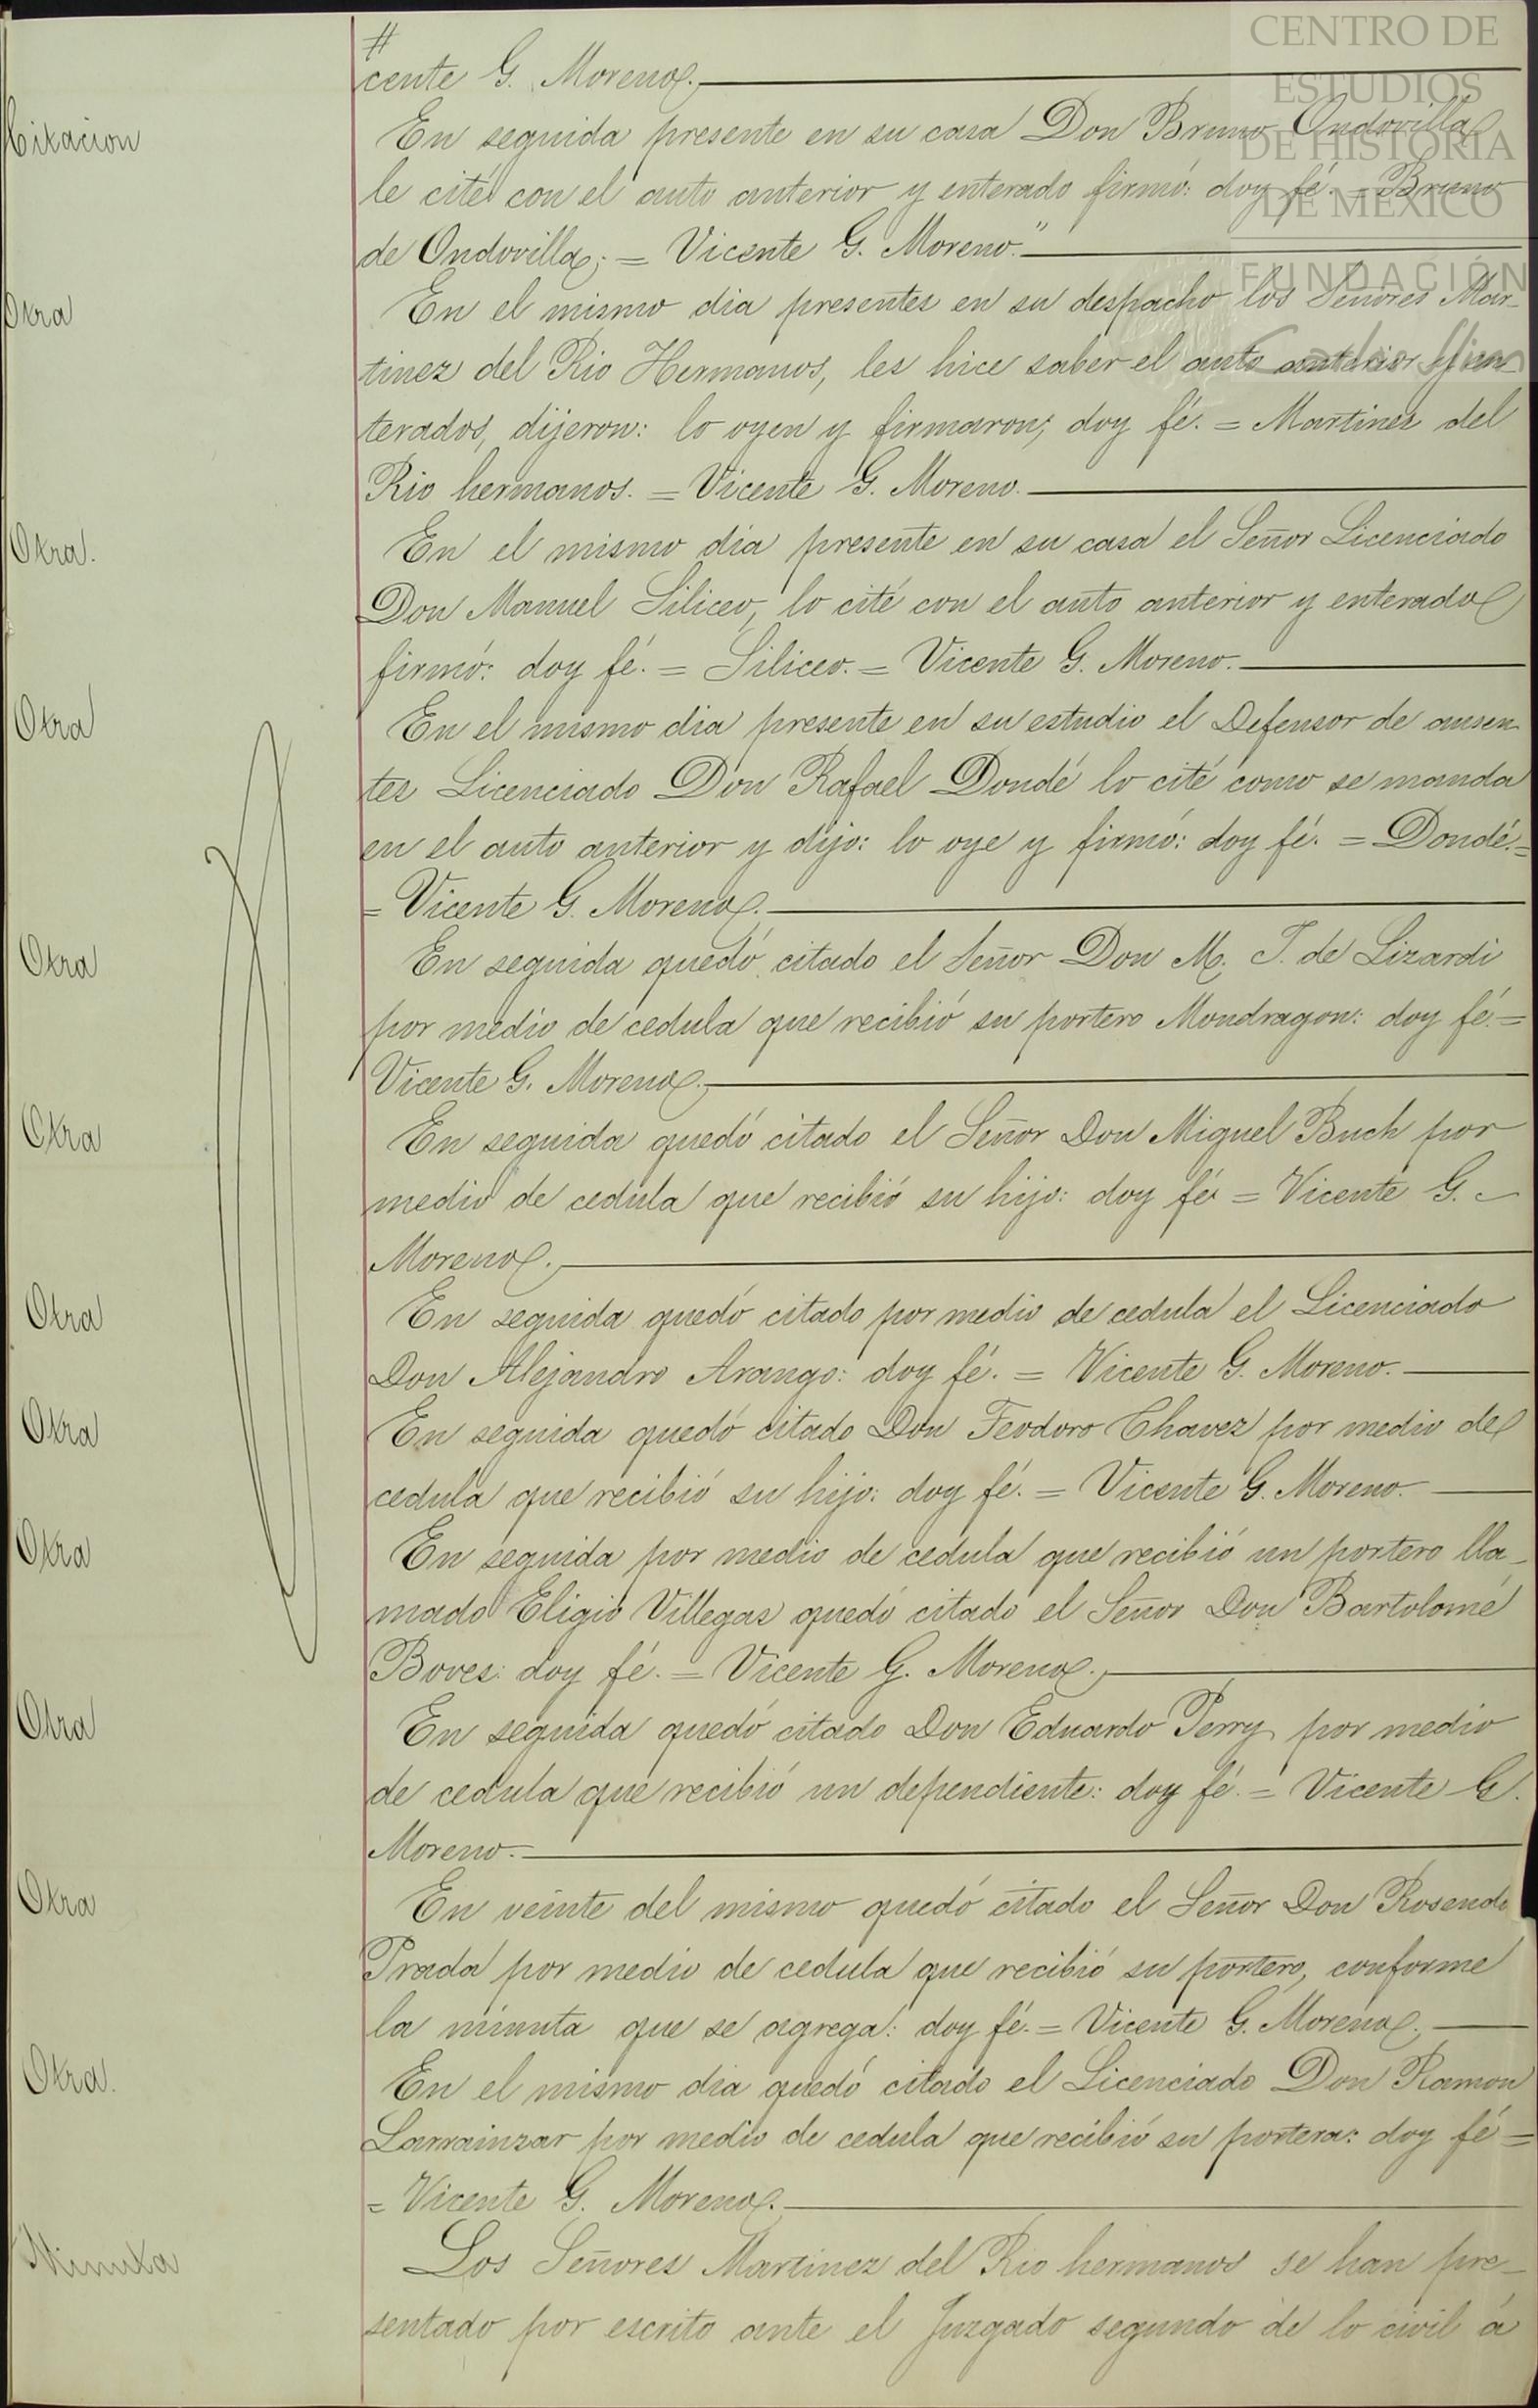 #
cente G. Moreno.
Citacion
En seguida presente en su casa Don Bruno Ondovilla
le cité con el auto anterior y enterado firmó: doy fé. = Bruno
de Ondovilla; = Vicente G. Moreno."
Otra
En el mismo dia presentes en su despacho los Señores Mar-
tinez del Rio Hermanos, les hice saber el auto anterior y en-
terados, dijeron: lo oyen y firmaron; doy fé. = Martinez del
Rio hermanos. = Vicente G. Moreno.
Otra.
En el mismo dia presente en su casa el Señor Licenciado
Don Manuel Siliceo, lo cité con el auto anterior y enterado
firmó: doy fé. = Siliceo. = Vicente G. Moreno.
Otra
En el mismo dia presente en su estudio el Defensor de ausen-
tes Licenciado Don Rafael Dondé lo cité como se manda
en el auto anterior y dijo: lo oye y firmó: doy fé. = Dondé. =
= Vicente G. Moreno.
Otra
En seguida quedó citado el Señor Don M. J. de Lizardi
por medio de cedula que recibió su portero Mondragon: doy fé. =
Vicente G. Moreno.
Otra
En seguida quedó citado el Señor Don Miguel Buch por
medio de cedula que recibió su hijo: doy fé = Vicente G.
Moreno.
Otra
En seguida quedó citado por medio de cedula el Licenciado
Don Alejandro Arango: doy fé. = Vicente G. Moreno.
Otra
En seguida quedó citado Don Teodoro Chavez por medio de
cedula que recibió su hijo: doy fé. = Vicente G. Moreno.
Otra
En seguida por medio de cedula que recibió un portero lla-
mado Eligio Villegas quedó citado el Señor Don Bartolomé
Boves: doy fé. = Vicente G. Moreno.
Otra
En seguida quedó citado Don Eduardo Perry por medio
de cedula que recibió un dependiente: doy fé. = Vicente G.
Moreno.
Otra
En veinte del mismo quedó citado el Señor Don Rosendo
Prada por medio de cedula que recibió su portero, conforme
la minuta que se agrega: doy fé. = Vicente G. Moreno.
Otra.
En el mismo dia quedó citado el Licenciado Don Ramon
Larrainzar por medio de cedula que recibió su portera: doy fé =
= Vicente G. Moreno.
Minuta
Los Señores Martinez del Rio hermanos se han pre-
sentado por escrito ante el Juzgado segundo de lo civil á
CENTRO DE
ESTUDIOS
DE HISTORIA
DE MÉXICO
FUNDACIÓN
Carlos Slim